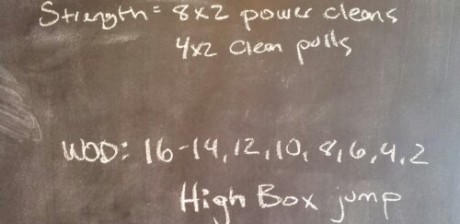 Strength= 8x2 power cleans
4x2 Clean pulls
WOD: 16-14, 12, 10, 8, 6, 4, 2
High Box jump